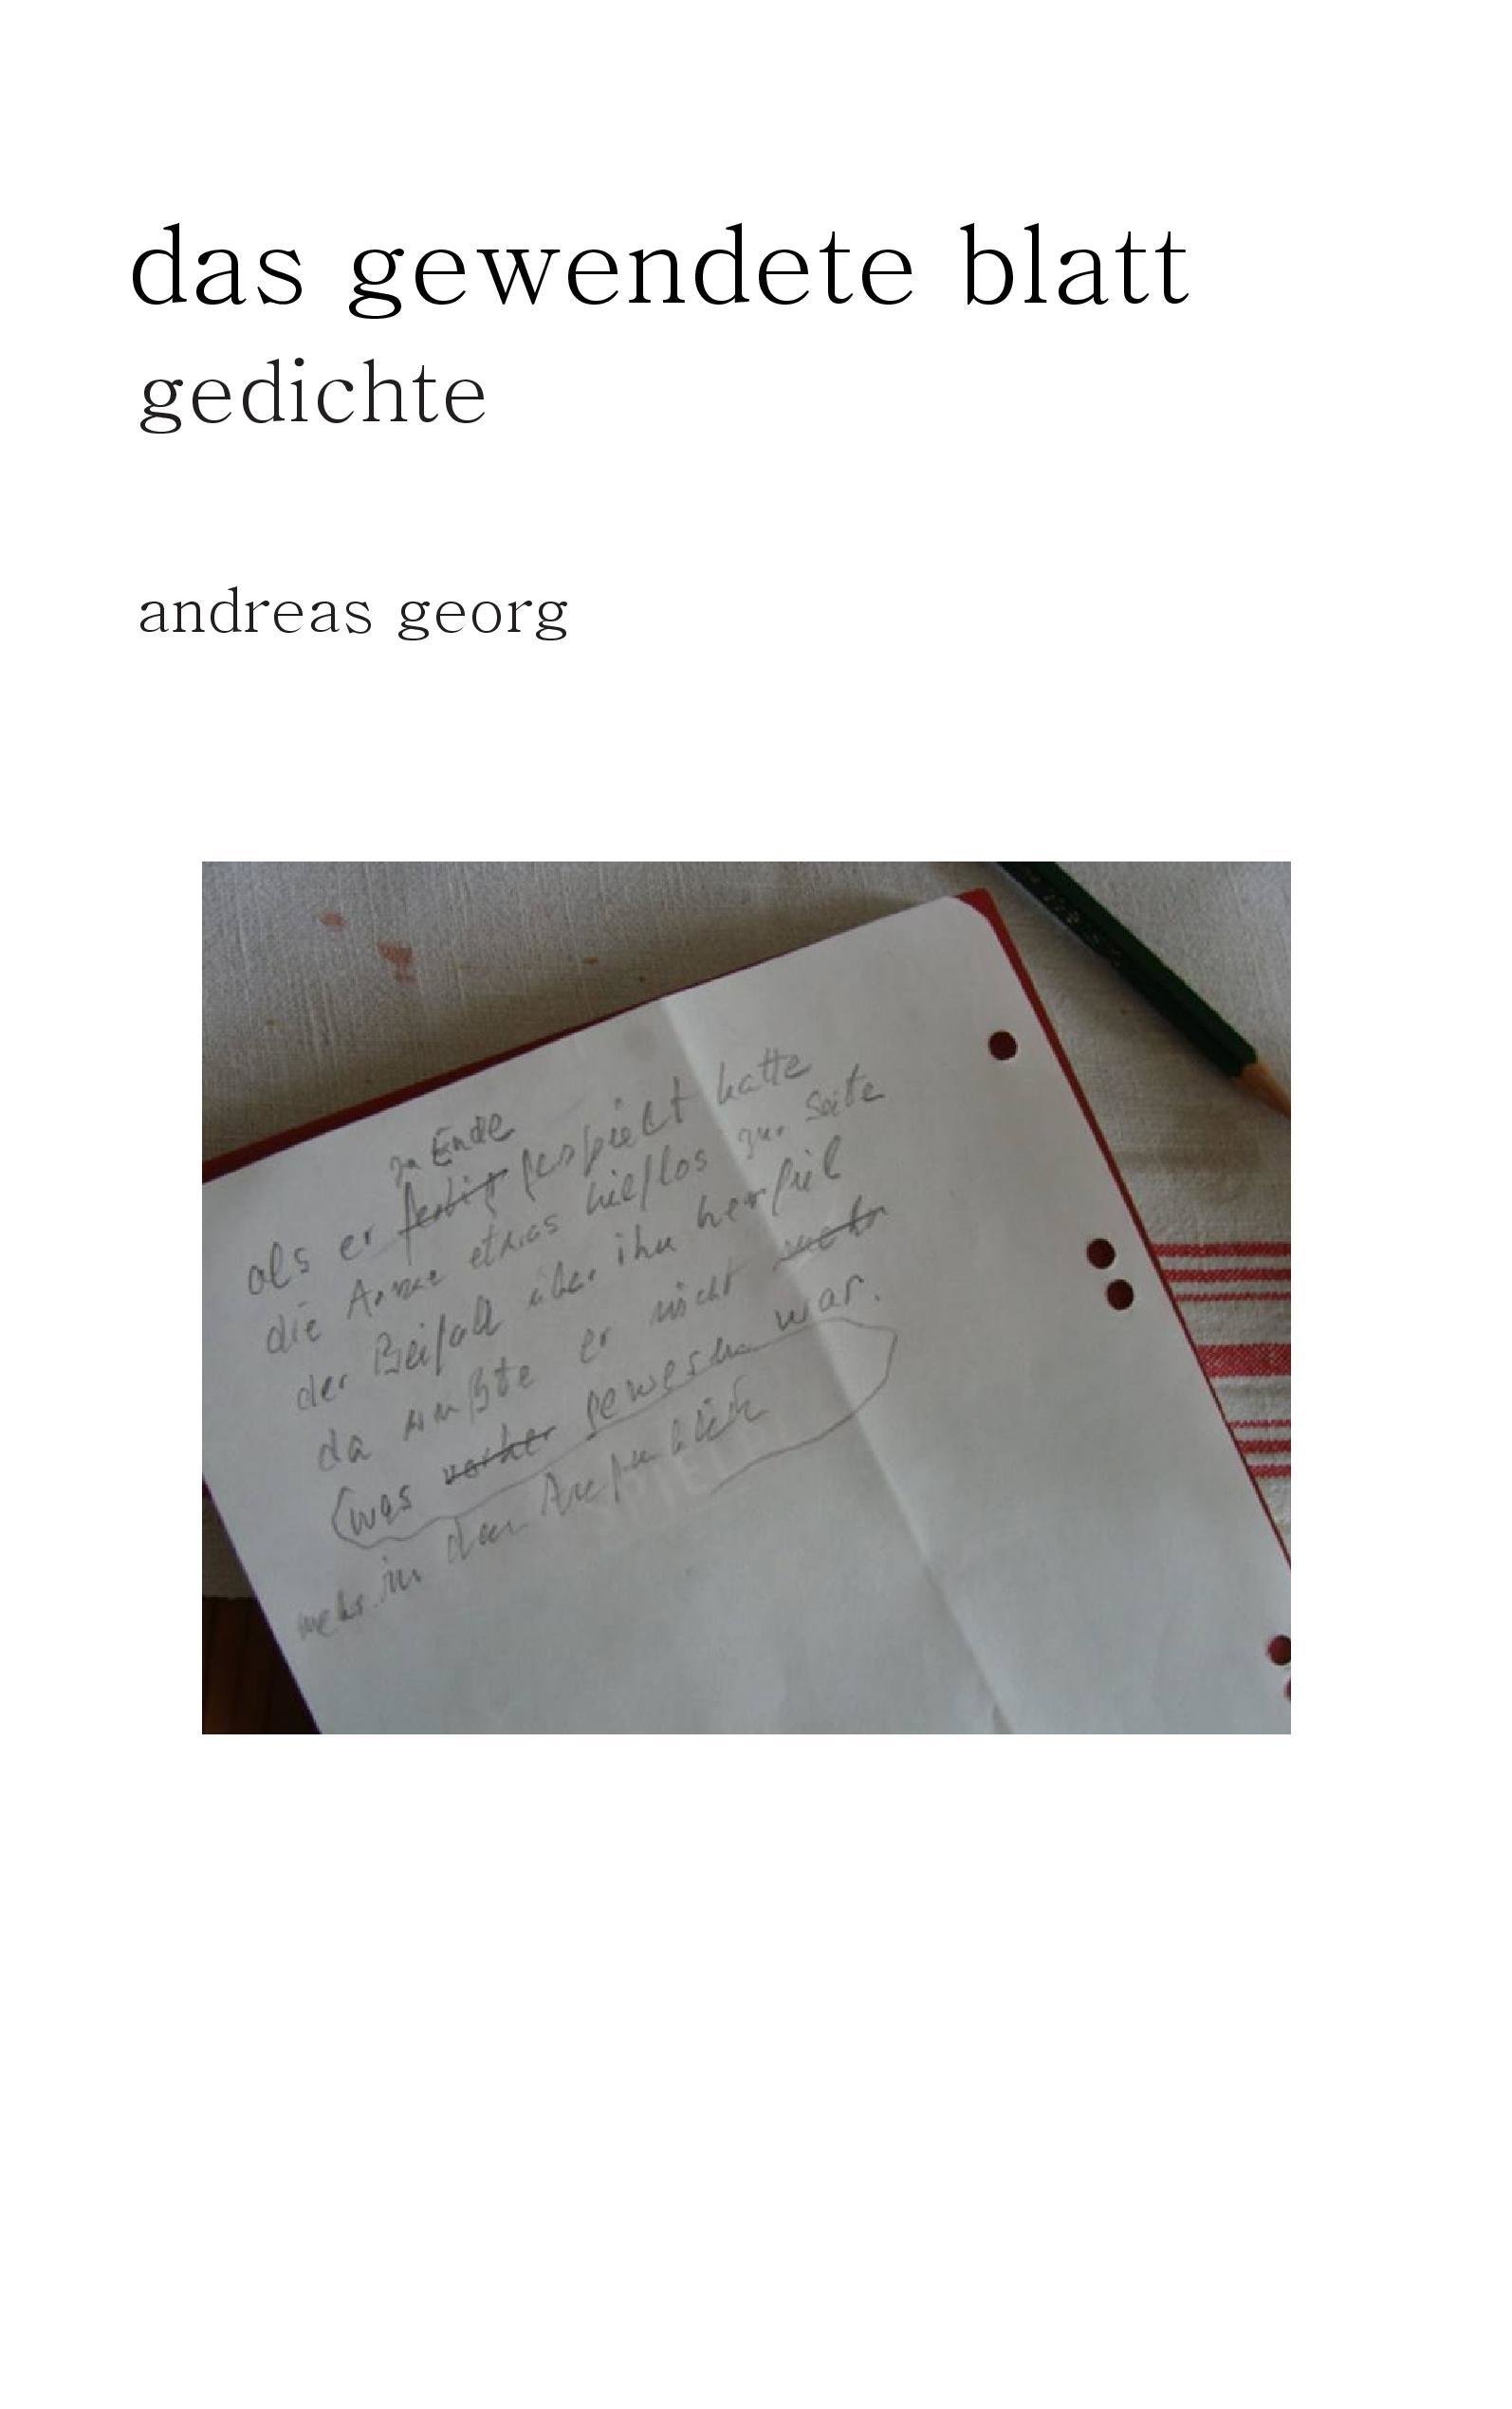 das gewendete blatt
gedichte
andreas georg
zu Ende
als er fertig gespielt hatte
die Arme etwas hilflos zur Seite
der Beifall über ihn herfiel
da wußte er nicht mehr
(was vorher gewesen war.
mehr in dem Augenblick